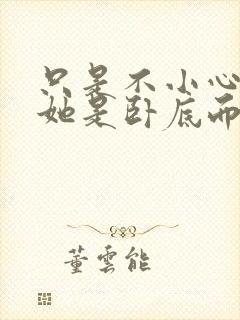 只是不小心
她是卧底而
董雲能